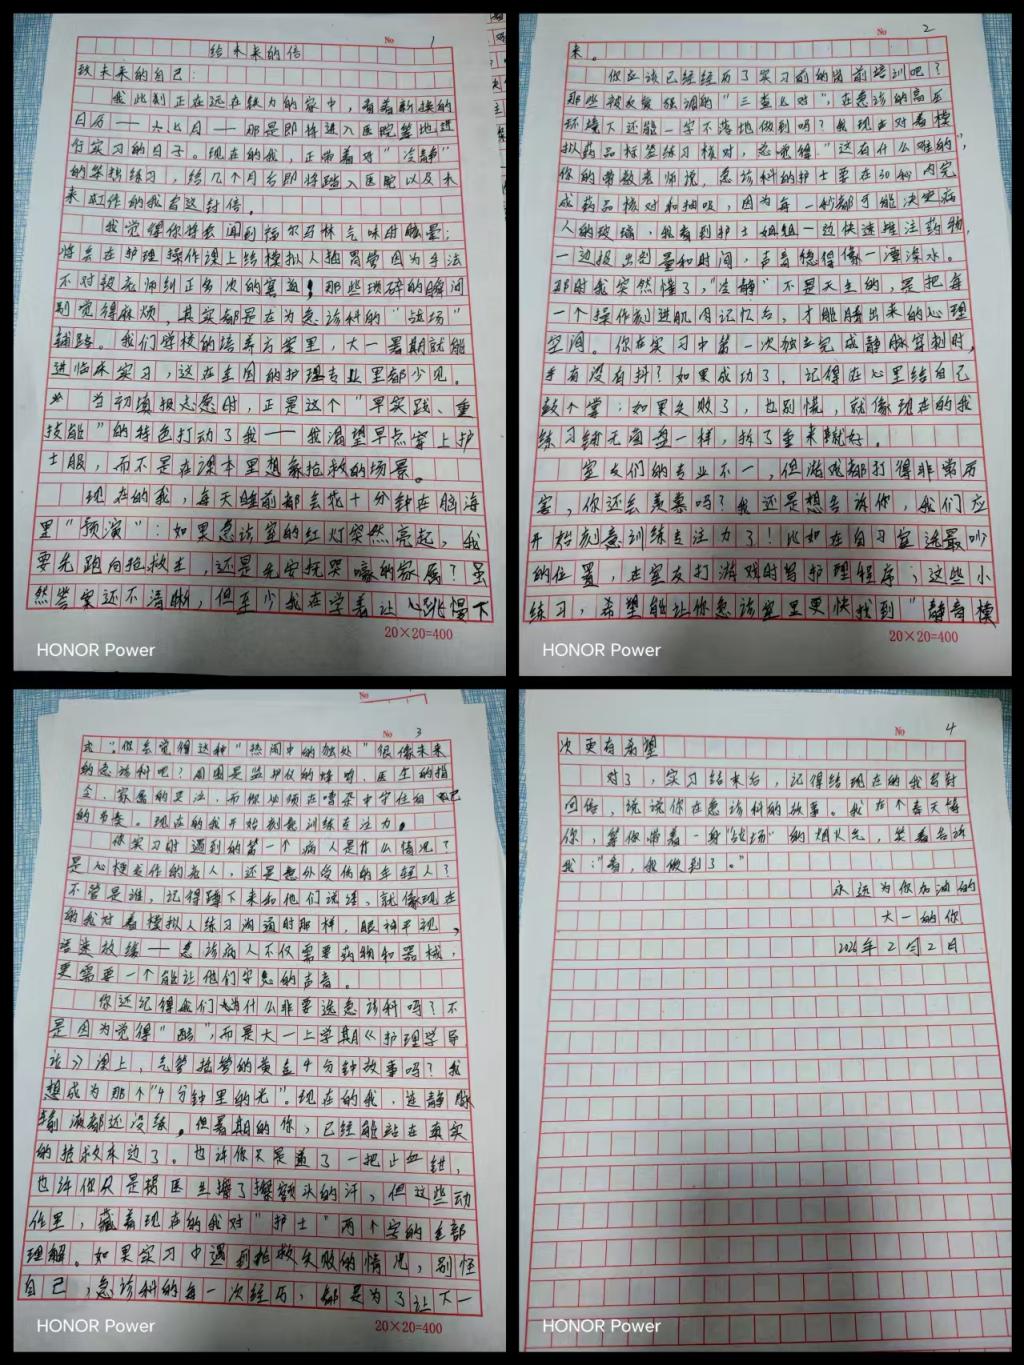 No 1
给未来的信
致未来的自己:
我此刻正在远在
的家中,看着新换的
日历——六七月——那是即将进入医院基地进
行实习的日子。现在的我,正带着对“冷静”
的练习,给几个月后即将踏入医院以及未
来工作的我写这封信。
我觉得你将会闻到福尔马林气味时
将会在护理操作课上给模拟人插胃管因为手法
不对被老师纠正多次的
那些琐碎的瞬间
别觉得麻烦,其实都是在为急诊科的“战场”
铺路。我们学校的培养方案里,大一暑期就能
进临床实习,这在全国的护理专业里都少见。
当初填报志愿时,正是这个“早实践、重
技能”的特色打动了我——我渴望早点穿上护
士服,而不是在课本里想象抢救的场景。
现在的我,每天睡前都会花十分钟在脑海
里“预演”:如果急诊室的红灯突然亮起,我
要先跑向抢救室,还是先安抚哭嚎的家属?虽
然答案还不清晰,但至少我在学着让心跳慢下
20×20=400
HONOR Power
No 2
来。
你应该已经经历了实习前的岗前培训吧?
那些被反复强调的“三查七对”,在急诊的高压
环境下还能一字不落地做到吗?我现在对着模
拟药品标签练习核对,总觉得“这有什么难的”,
你的带教老师说,急诊科的护士要在30秒内完
成药品核对和抽吸,因为每一秒都可能决定病
人的
我看到护士姐姐一边快速推注药物,
一边报出剂量和时间,声音稳得像一潭深水。
那时我突然懂了,“冷静”不是天生的,是把每
一个操作刻进肌肉记忆后,才能腾出来的心理
空间。你在实习中第一次独立完成静脉穿刺时,
手有没有抖?如果成功了,记得在心里给自己
鼓个掌;如果失败了,也别慌,就像现在的我
练习铺无菌盘一样,拆了重来就好。
室友们的专业不一,但游戏都打得非常厉
害,你还会羡慕吗?我还是想告诉你,我们应
开始刻意训练专注力了!比如在自习室选最吵
的位置,在室友打游戏时写护理程序;这些小
练习,希望能让你急诊室里更快找到“静音模
20×20=400
HONOR Power
No 3
式”。你会觉得这种“热闹中的独处”很像未来
的急诊科吧?周围是监护仪的蜂鸣、医生的指
令、家属的哭泣,而你必须在嘈杂中守住自己
的节奏。现在的我开始刻意训练专注力。
你实习时遇到的第一个病人是什么情况?
是心梗发作的老人,还是意外受伤的年轻人?
不管是谁,记得蹲下来和他们说话,就像现在
的我对着模拟人练习沟通时那样,眼神平视,
语速放缓——急诊病人不仅需要药物和器械,
更需要一个能让他们安心的声音。
你还记得我们为什么非要选急诊科吗?不
是因为觉得“酷”,而是大一上学期《护理学导
论》课上,气管插管的黄金4分钟故事吗?我
想成为那个“4分钟里的光”。现在的我,连静脉
输液都还没练,但暑期的你,已经能站在真实
的抢救床边了。也许你只是递了一把止血钳,
也许你只是帮医生擦了擦额头的汗,但这些动
作里,藏着现在的我对“护士”两个字的全部
理解。如果实习中遇到抢救失败的情况,别怪
自己,急诊科的每一次经历,都是为了让下一
20×20=400
HONOR Power
No 4
次更有希望
对了,实习结束后,记得给现在的我写封
回信,说说你在急诊科的故事。我在个春天等
你,等你带着一身“战场”的烟火气,笑着告诉
我:“看,我做到了。”
永远为你加油的
大一的你
2026年2月2日
HONOR Power